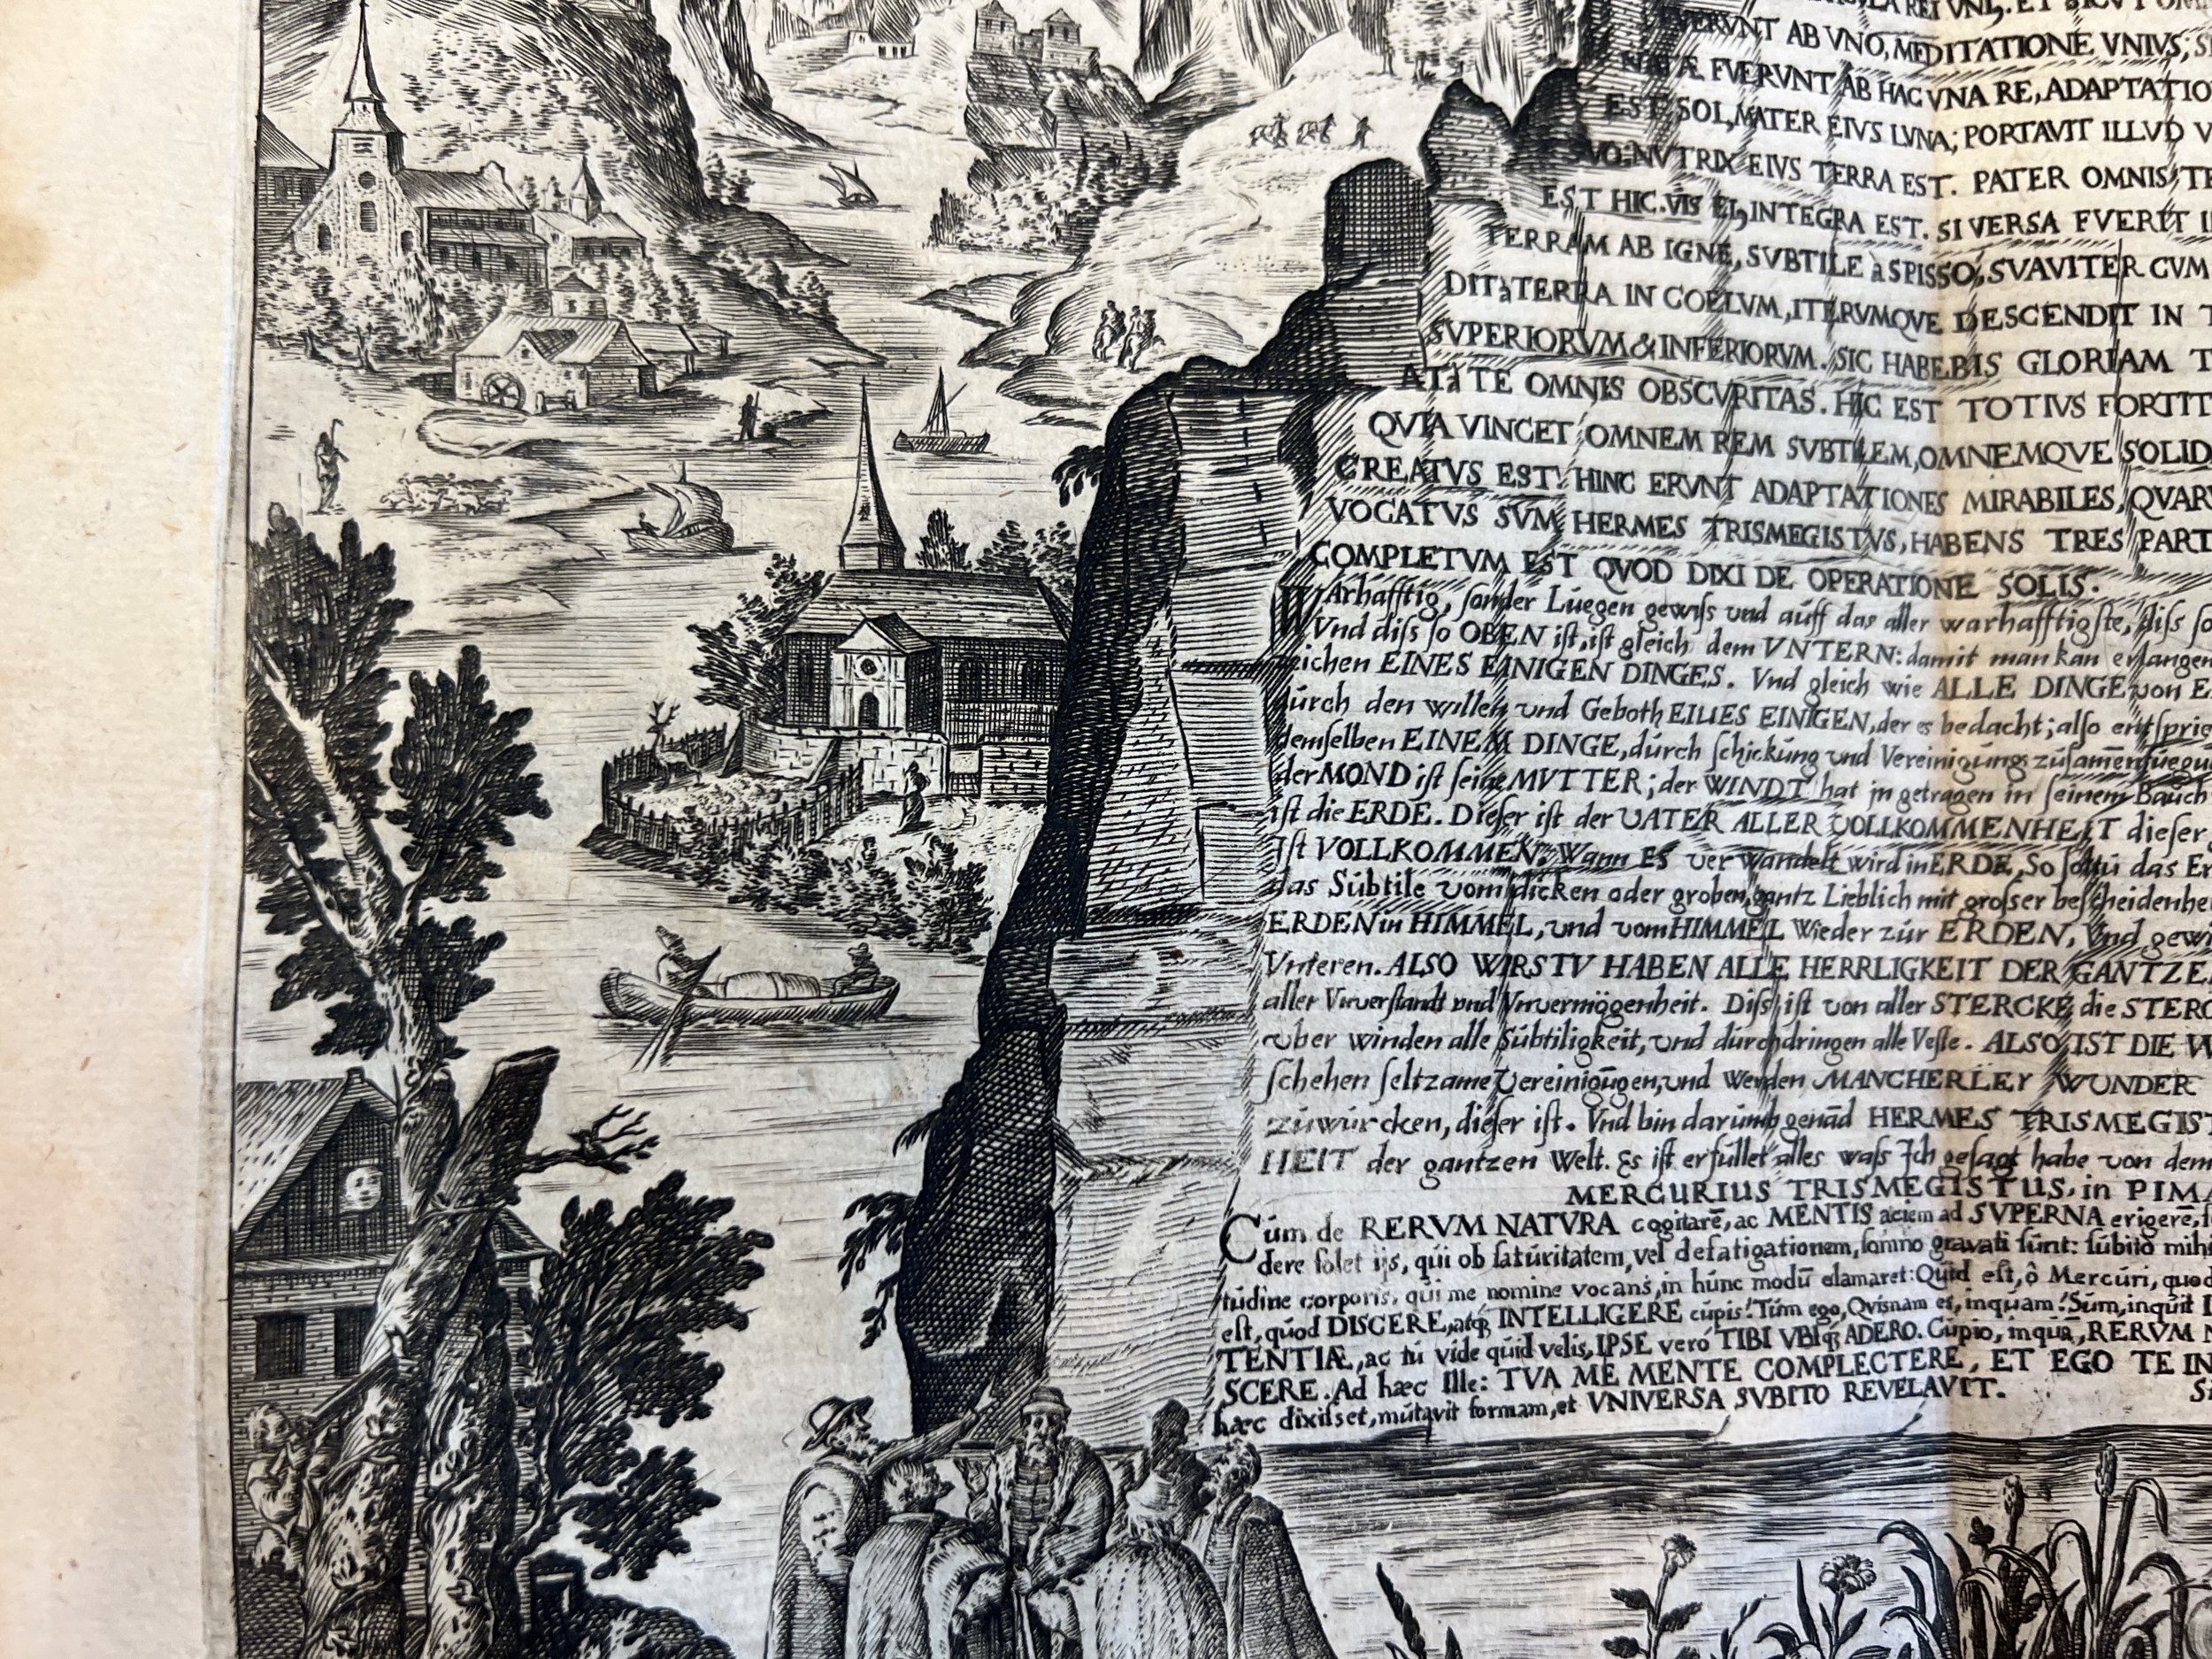 REI VNI9. ET SICVT OM
FVERVNT AB VNO, MEDITATIONE VNIVS; S
NATÆ FVERVNT AB HAC VNA RE, ADAPTATIO
EST SOL, MATER EIVS LVNA; PORTAVIT ILLVD V
SVO: NVTRIX EIVS TERRA EST. PATER OMNIS TE
EST HIC. VIS EI9 INTEGRA EST. SI VERSA FVERIT I
TERRAM AB IGNE, SVBTILE à SPISSO, SVAVITER CVM
DIT à TERRA IN COELVM, ITERVMQVE DESCENDIT IN T
SVPERIORVM & INFERIORVM. SIC HABEBIS GLORIAM T
AT à TE OMNIS OBSCVRITAS. HIC EST TOTIVS FORTIT
QVIA VINCET OMNEM REM SVBTILEM, OMNEMQVE SOLID
CREATVS EST. HINC ERVNT ADAPTATIONES MIRABILES, QVAR
VOCATVS SVM HERMES TRISMEGISTVS, HABENS TRES PART
COMPLETVM EST QVOD DIXI DE OPERATIONE SOLIS.
WArhafftig, sonder Luegen gewiss vnd auff das aller warhafftigste, diss so
Vnd diss so OBEN ist, ist gleich dem VNTERN: damit man kan erlangen
eichen EINES EINIGEN DINGES. Vnd gleich wie ALLE DINGE von E
durch den willen vnd Geboth EINES EINIGEN, der es bedacht; also entsprie
demselben EINEM DINGE, durch schickung vnd Vereinigung: zusamenfuegu
der MOND ist seine MVTTER; der WINDT hat jn getragen in seinem Bauch
ist die ERDE. Dieser ist der VATER ALLER VOLLKOMMENHEIT dieser
Ist VOLLKOMMEN. Wann ES verwandelt wird in ERDE, So soltu das Er
das Subtile vom dicken oder groben, gantz Lieblich mit grosser bescheidenhe
ERDEN in HIMMEL, vnd vom HIMMEL Wieder zur ERDEN, Vnd gewi
Vnteren. ALSO WIRSTV HABEN ALLE HERRLIGKEIT DER GANTZE
aller Vnverstandt vnd Vnvermögenheit. Diss ist von aller STERCKE die STERC
vber winden alle Subtiligkeit, vnd durchdringen alle Veste. ALSO IST DIE W
schehen seltzame Vereinigūgen, vnd werden MANCHERLEY WUNDER
zuwurcken, dieser ist. Vnd bin darumb genād HERMES TRISMEGIST
HEIT der gantzen Welt. Es ist erfullet alles wass Ich gesagt habe von dem
MERCURIUS TRISMEGISTUS, in PIMA
Cum de RERVM NATVRA cogitarē, ac MENTIS aciem ad SVPERNA erigerē, s
dere solet ijs, qui ob saturitatem, vel defatigationem, somno gravati sunt: subito mihi
tudine corporis, qui me nomine vocans, in hunc modū clamaret: Quid est, ô Mercuri, quod
est, quod DISCERE, atq3 INTELLIGERE cupis? Tum ego, Qvisnam es, inquam? Sum, inquit I
TENTIÆ, ac tu vide quid velis, IPSE vero TIBI VBIq3 ADERO. Cupio, inquā, RERVM N
SCERE. Ad hæc Ille: TVA ME MENTE COMPLECTERE, ET EGO TE IN
hæc dixisset, mutavit formam, et VNIVERSA SVBITO REVELAVIT.